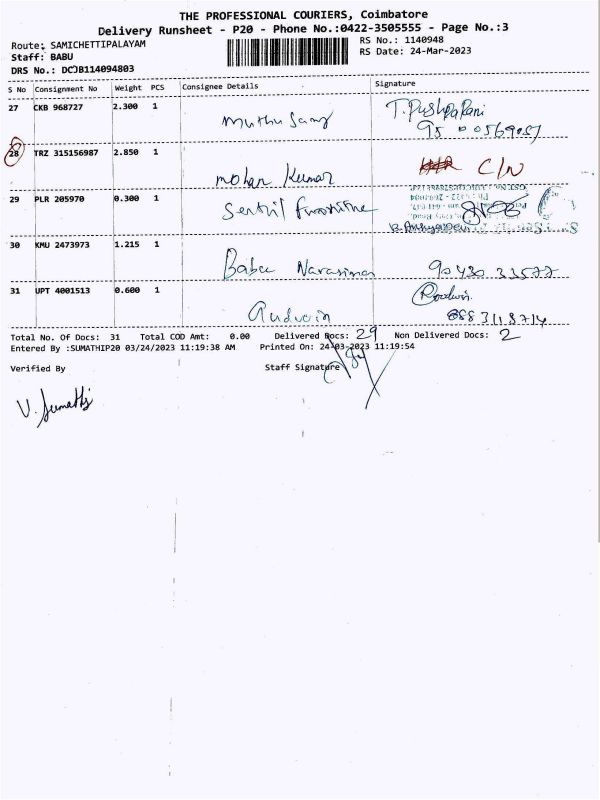 THE PROFESSIONAL COURIERS, Coimbatore
Delivery Runsheet - P20 - Phone No.:0422-3505555 - Page No.:3
Route: SAMICHETTIPALAYAM
RS No.: 1140948
Staff: BABU
RS Date: 24-Mar-2023
DRS No.: DCJB114094803
S No Consignment No Weight PCS Consignee Details Signature
27 CKB 968727 2.300 1
Muthu Samy
T. Pushpa Rani
28 TRZ 315156987 2.850 1
Mohan Kumar C/N
29 PLR 205970 0.300 1
Senthil
30 KMU 2473973 1.215 1
Babu Narasiman 90430 33577
31 UPT 4001513 0.600 1
Total No. Of Docs: 31 Total COD Amt: 0.00 Delivered Docs: 29 Non Delivered Docs: 2
Entered By :SUMATHIP20 03/24/2023 11:19:38 AM Printed On: 24-03-2023 11:19:54
Verified By Staff Signature
V. Sumathi